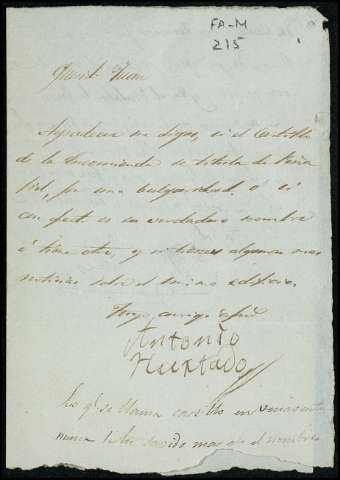 FA-M
215
Querid. Juan
me digas, si el Castillo
de la Encomienda se titula de Peña
fiel, por una bulgaridad o si
en es su verdadero nombre
ó tiene otro, y si tienes algunas mas
noticias sobre el mismo edificio.
Tuyo amigo
Antonio
Hurtado
Lo q.e se llama castillo en
nunca ha tenido mas q.e el nombre